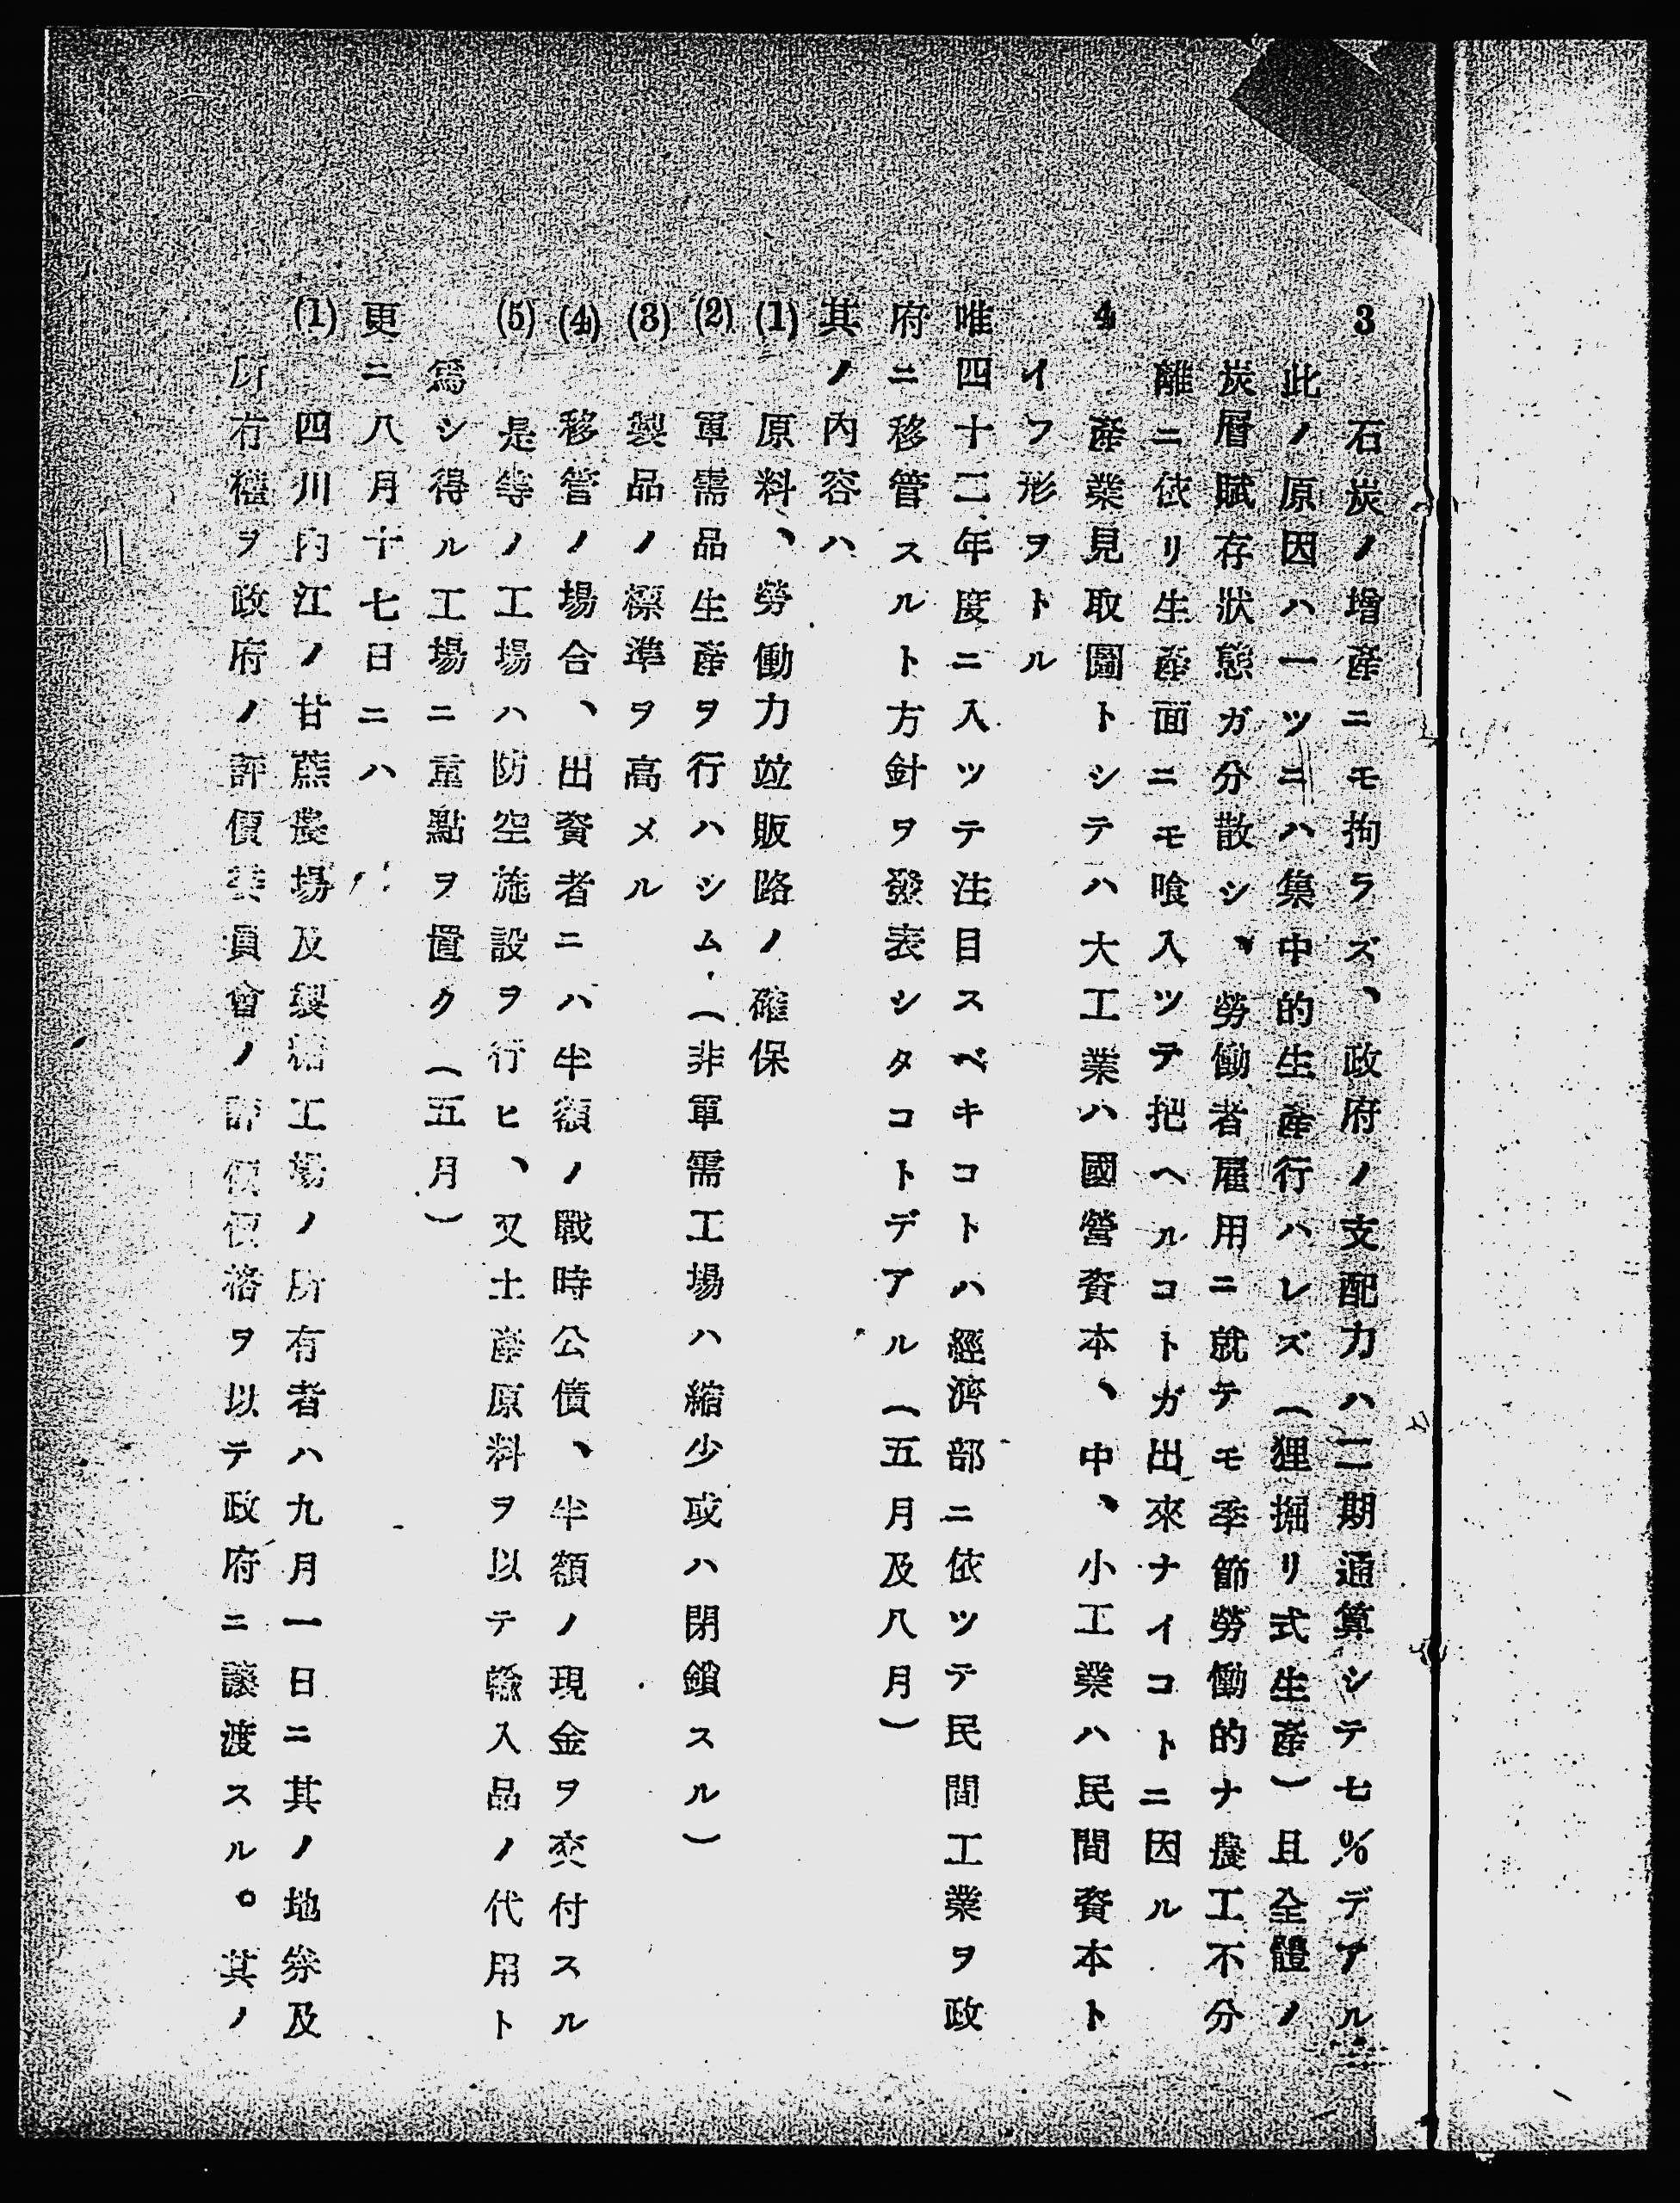 3 石炭ノ增產ニモ拘ラズ、政府ノ支配力ハ二期通算シテ七％デアル
此ノ原因ハ一ツニハ集中的生產行ハレズ（狸掘リ式生產）且全體ノ
炭層賦存狀態ガ分散シ、勞働者雇用ニ就テモ季節勞働的ナ農工不分
離ニ依リ生產面ニモ喰入ツテ把ヘルコトガ出來ナイコトニ因ル
4 產業見取圖トシテハ大工業ハ國營資本、中、小工業ハ民間資本ト
イフ形ヲトル
唯四十二年度ニ入ツテ注目スベキコトハ經濟部ニ依ツテ民間工業ヲ政
府ニ移管スルト方針ヲ發表シタコトデアル（五月及八月）
其ノ內容ハ
(1) 原料、勞働力竝販路ノ確保
(2) 軍需品生產ヲ行ハシム、（非軍需工場ハ縮少或ハ閉鎖スル）
(3) 製品ノ標準ヲ高メル
(4) 移管ノ場合、出資者ニハ半額ノ戰時公債、半額ノ現金ヲ交付スル
(5) 是等ノ工場ハ防空施設ヲ行ヒ、又土產原料ヲ以テ輸入品ノ代用ト
爲シ得ル工場ニ重點ヲ置ク（五月）
更ニ八月十七日ニハ
(1) 四川內江ノ甘蔗農場及製糖工場ノ所有者ハ九月一日ニ其ノ地券及
所有權ヲ政府ノ評價委員會ノ評價價格ヲ以テ政府ニ讓渡スル。其ノ